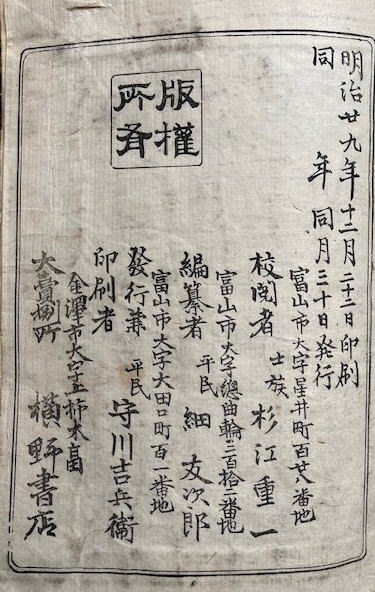 明治廿九年十二月二十二日印刷
同年同月三十日発行
富山市大字星井町百廿八番地
校閲者 士族 杉江重一
富山市大字總曲輪三百拾二番地
編纂者 平民 細友次郎
富山市大字大田口町百一番地
發行兼 平民 守川吉兵衞
印刷者
金澤市大字上柿木畠
大賣捌所 横野書店
版權
所有